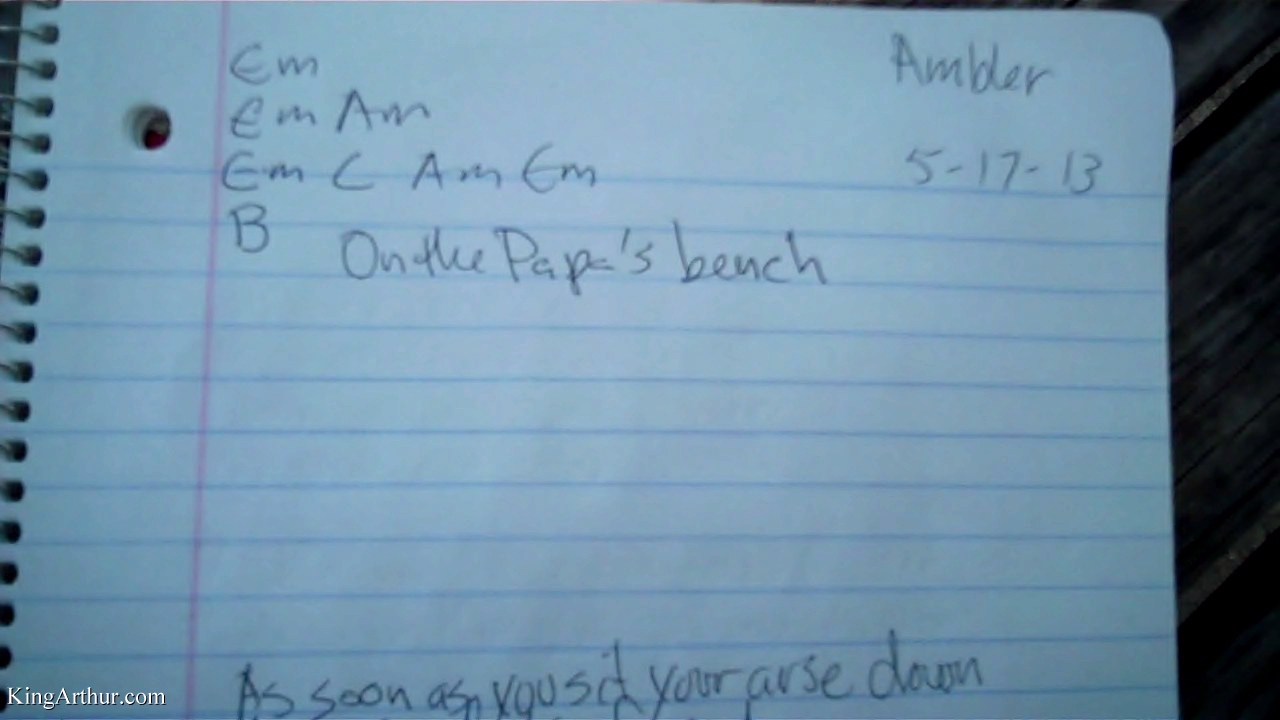 Em
Em Am
Em C Am Em
B
Ambler
5-17-13
On the Papa's bench
As soon as you sit your arse down
KingArthur.com